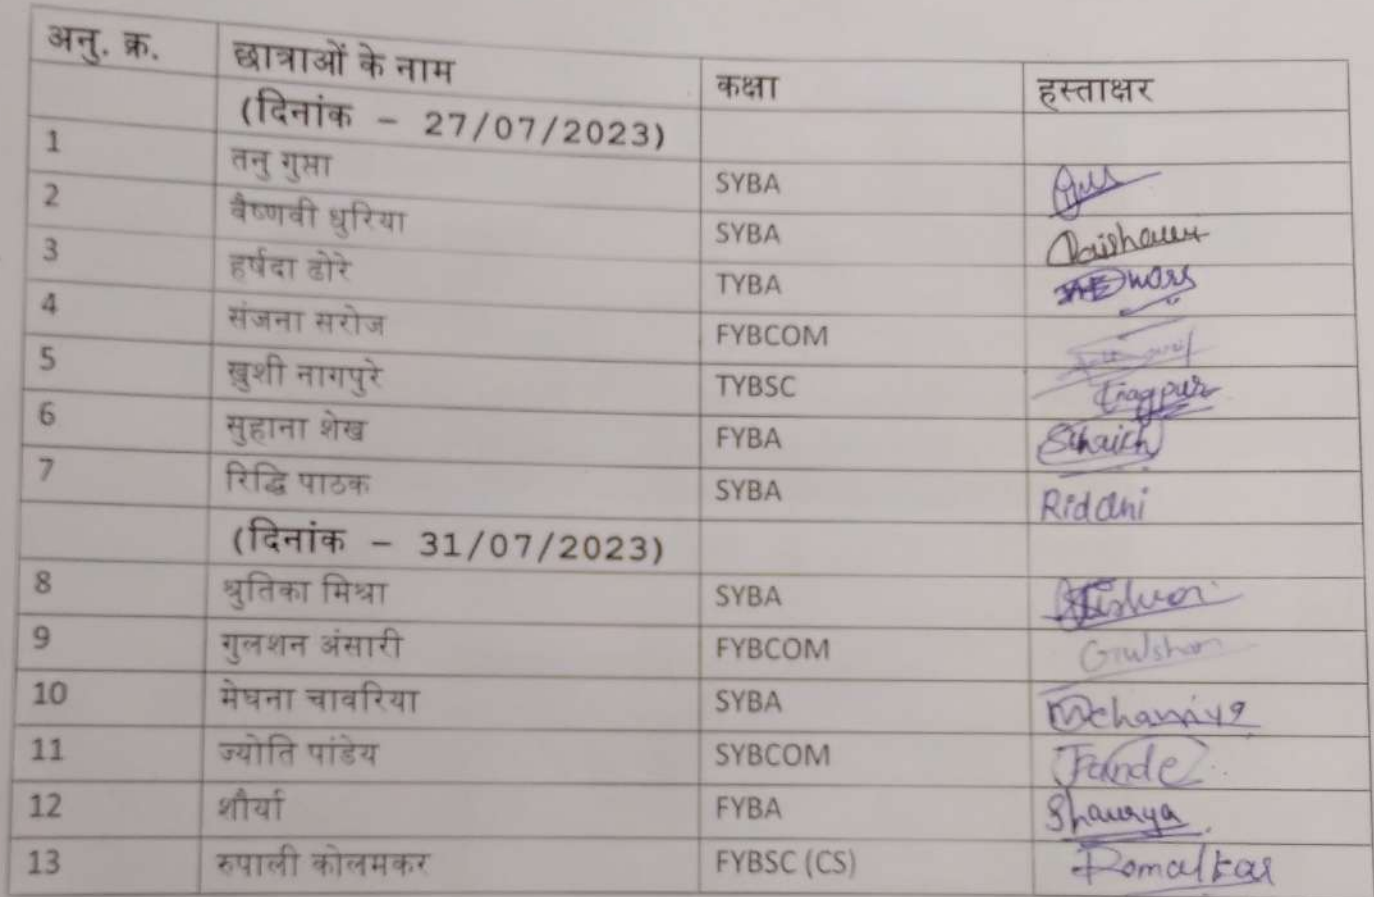 अनु. क्र. छात्राओं के नाम कक्षा हस्ताक्षर
(दिनांक - 27/07/2023)
1 तनु गुप्ता SYBA
2 वैष्णवी धुरिया SYBA
3 हर्षदा ढोरे TYBA
4 संजना सरोज FYBCOM
5 खुशी नागपुरे TYBSC
6 सुहाना शेख FYBA Shaikh
7 रिद्धि पाठक SYBA Riddhi
(दिनांक - 31/07/2023)
8 श्रुतिका मिश्रा SYBA
9 गुलशन अंसारी FYBCOM Gulshan
10 मेघना चावरिया SYBA
11 ज्योति पांडेय SYBCOM
12 शौर्या FYBA Shaurya
13 रुपाली कोलमकर FYBSC (CS)